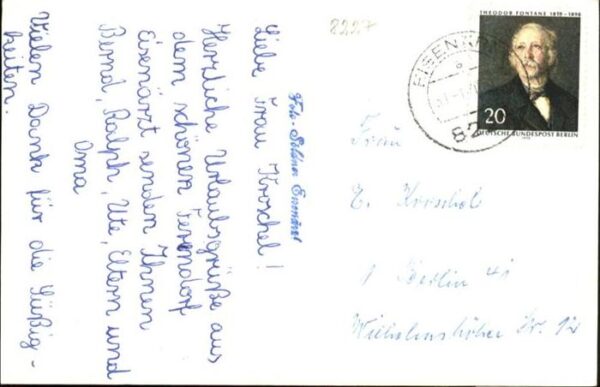 2227
Liebe Frau Kroschel!
Herzliche Urlaubsgrüße aus
dem schönen Feriendorf
Eisenärzt senden Ihnen
Bernd, Ralph, Ute, Eltern und
Oma
Vielen Dank für die Süßig-
keiten.
THEODOR FONTANE 1819-1898
20
DEUTSCHE BUNDESPOST BERLIN
EISENÄRZT
82
Frau
E. Kroschel
1 Berlin 41
Wilhelmshöher Str. 12